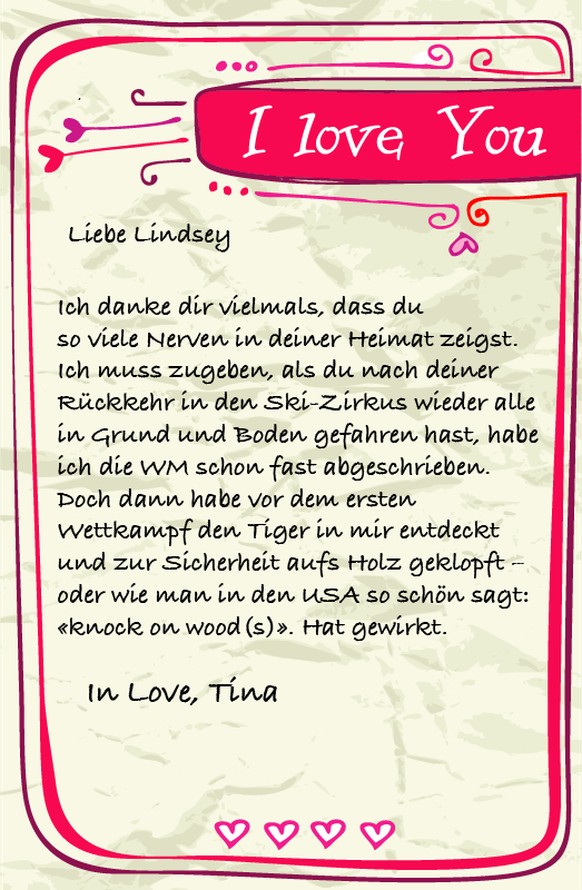 I love You
Liebe Lindsey
Ich danke dir vielmals, dass du
so viele Nerven in deiner Heimat zeigst.
Ich muss zugeben, als du nach deiner
Rückkehr in den Ski-Zirkus wieder alle
in Grund und Boden gefahren hast, habe
ich die WM schon fast abgeschrieben.
Doch dann habe vor dem ersten
Wettkampf den Tiger in mir entdeckt
und zur Sicherheit aufs Holz geklopft –
oder wie man in den USA so schön sagt:
«knock on wood(s)». Hat gewirkt.
In Love, Tina